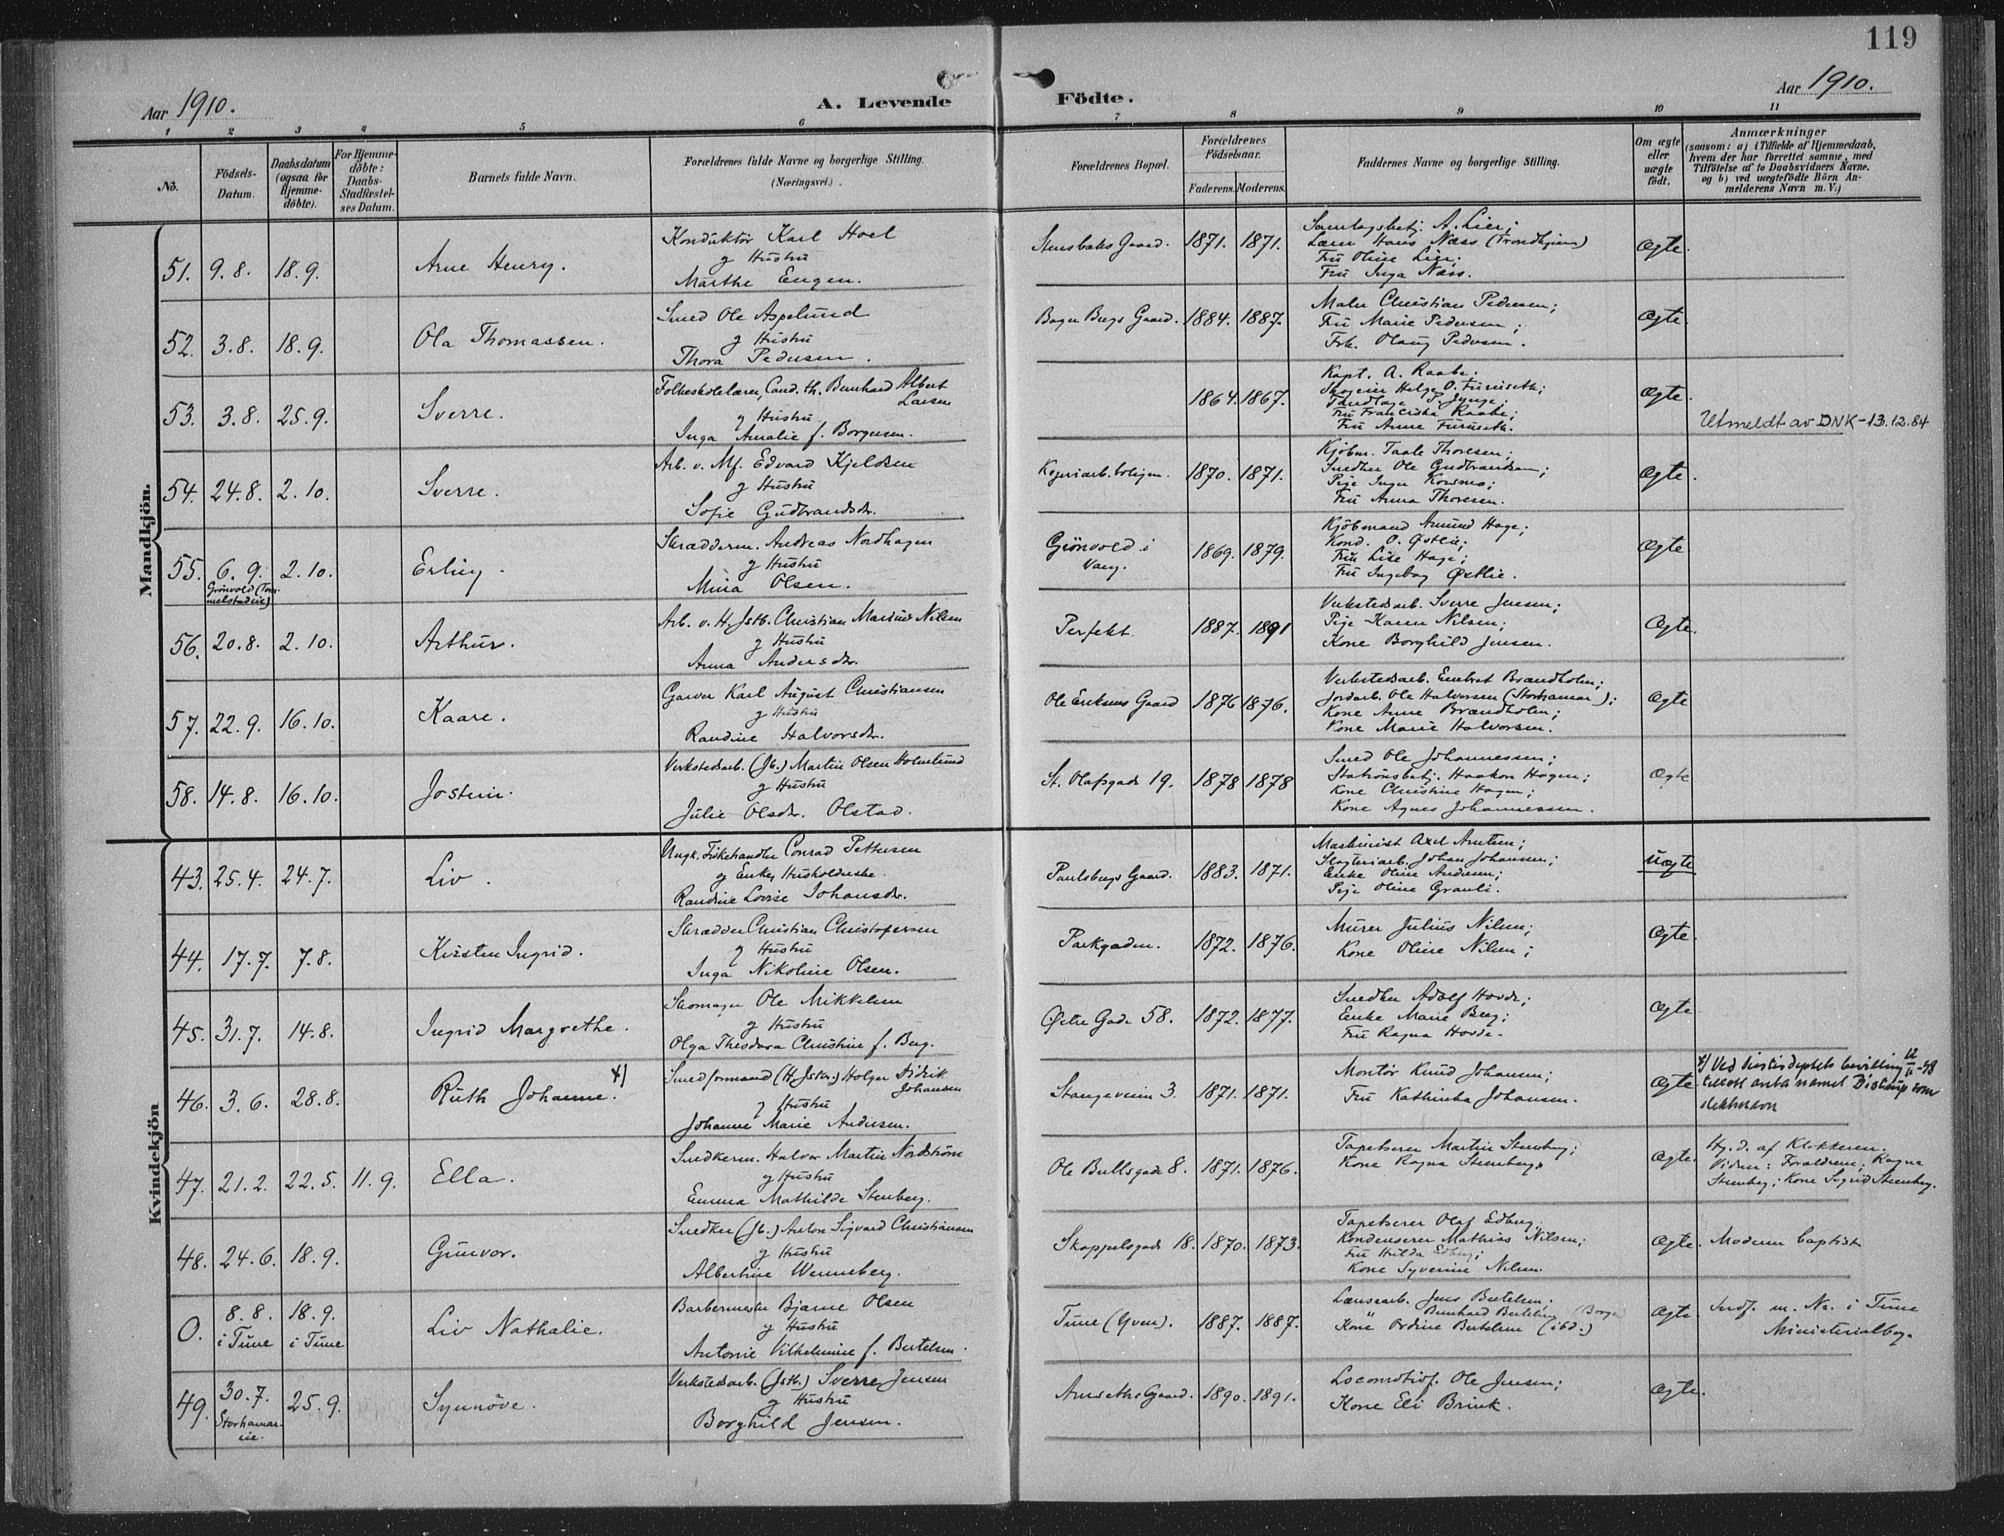 119
Aar 1910.
A. Levende Födte.
Aar 1910.
1 2 3 4 5 6 7 8 9 10 11
No.
Födsels-Datum.
Daabsdatum (ogsaa for Hjemme-döbte).
For Hjemme-döbte: Daabs-Stadfæstel-ses Datum.
Barnets fulde Navn.
Forældrenes fulde Navne og borgerlige Stilling.
(Næringsvei.)
Forældrenes Bopæl.
Forældrenes Födselsaar.
Faderens. Moderens.
Faddernes Navne og borgerlige Stilling.
Om ægte eller uægte födt.
Anmærkninger
(saasom: a) i Tilfælde af Hjemmedaab, hvem der har forrettet samme, med Tilföielse af to Daabsvidners Navne. og b) ved uægtefödte Börn An-melderens Navn m. V.)
Mandkjön.
51. 9.8. 18.9. Arne Henry.
Konduktör Karl Hoel
g Hustru
Marthe Engen.
Stensbaks Gaard. 1871. 1871.
A. Lier;
Lærer Hans Næss (Trondhjem)
Fru Oline Lier;
Fru Inga Næss.
Ægte.
52. 3.8. 18.9. Ola Thomassen.
Smed Ole Aspelund
g Hustru
Thora Pedersen.
Bager Bergs Gaard. 1884. 1887.
Maler Christian Pedersen;
Fru Marie Pedersen;
Frk. Olaug Pedersen.
Ægte.
53. 3.8. 25.9. Sverre.
Folkeskolelærer, Cand. th. Bernhard Albert Larsen
g Hustru
Inga Amalie f. Borgersen.
1864. 1867.
Kapt. A. Raabe;
Helge O. Furuseth;
Fru Franciska Raabe;
Fru Anne Furuseth.
Ægte.
Utmeldt av DNK - 13.12.84
54. 24.8. 2.10. Sverre.
Arb. v. Mf. Edvard Kjeldsen
g Hustru
Sofie Gudbrandsdr.
1870. 1871.
Kjøbm. Taale Thoresen;
Snedker Ole Gudbrandsen;
Pige Inga Korsmo;
Fru Anna Thoresen.
Ægte.
55. 6.9. 2.10. Erling.
Grönvold
Skrædderm. Andreas Nordhagen
g Hustru
Mina Olsen.
Grönvold i Vang. 1869. 1879.
Kjöbmand Amund Hage;
Kond. O. Østlie;
Fru Lise Hage;
Fru Ingeborg Østlie.
Ægte
56. 20.8. 2.10. Arthur.
Arb. v. H. Jstb. Christian Marius Nilsen
g Hustru
Anna Andersdr.
Perfekt. 1887. 1891
Verkstedsarb. Sverre Jensen;
Pige Karen Nilsen;
Kone Borghild Jensen.
Ægte.
57. 22.9. 16.10. Kaare.
Garver Karl August Christiansen
g Hustru
Randine Halvorsdr.
Ole Eriksens Gaard 1876 1876.
Verkstedsarb. Embret Brændholen;
Jordarb. Ole Halvorsen (Storhamar);
Kone Anne Brændholen;
Kone Marie Halvorsen.
Ægte
58. 14.8. 16.10. Jostein.
Verkstedsarb. (Jb.) Martin Olsen Holmlund
g Hustru
Julie Olsdr. Olstad.
St. Olafsgade 19. 1878 1878
Smed Ole Johannessen;
Stationsbetj. Haakon Hagen;
Kone Christine Hagen;
Kone Agnes Johannessen.
Ægte
Kvindekjön
43. 25.4. 24.7. Liv.
Ungk. Fiskehandler Conrad Pettersen
g Enke, Husholderske.
Randine Lovise Johansdr.
Paulsbergs Gaard. 1883. 1871.
Maskinist Axel Arntzen;
Slagteriarb. Johan Johansen;
Enke Oline Andersen;
Pige Oline Granli.
Uægte
44. 17.7. 7.8. Kirsten Ingrid.
Skrædder Christian Christofersen
g Hustru
Inga Nikoline Olsen.
Parkgaden. 1872. 1876.
Murer Julius Nilsen;
Kone Oline Nilsen;
Ægte.
45. 31.7. 14.8. Ingrid Margrethe.
Skomager Ole Mikkelsen
g Hustru
Olga Theodora Christine f. Berg.
Østre Gade 58. 1872. 1877.
Snedker Adolf Hovde;
Enke Marie Berg;
Fru Ragna Hovde.
Ægte.
46. 3.6. 28.8. Ruth Johanne. x)
Smedformand (H. Jstb.) Holger Didrik Johansen
g Hustru
Johanne Marie Andersen.
Stangeveien 3. 1871. 1871.
Montör Knud Johansen;
Fru Kathinka Johansen.
Ægte.
x) Ved Justisdeptets bevilling
tillatt anta namet som
slektsnavn
47. 21.2. 22.5. 11.9. Ella.
Snedkerm. Halvor Martin Nordström
g Hustru
Emma Mathilde Stenberg.
Ole Bullsgade 8. 1871. 1876.
Tapetserer Martin Stenberg;
Kone Ragna Stenberg.
Ægte.
Hj.d. af Klokkeren.
Vidner: Forældrene; Ragna
Stenberg; Kone Sigrid Stenberg.
48. 24.6. 18.9. Gunvor.
Snedker (Jb.) Anton Sigvard Christiansen
g Hustru
Albertine Wenneberg.
Skappelsgade 18. 1870. 1873.
Tapetserer Olaf Edberg.
Kondenserer Mathias Nilsen;
Fru Hilda Edberg;
Kone Syverine Nilsen.
Ægte.
Moderen baptist
0. 8.8. i Tune 18.9. i Tune Liv Nathalie.
Barbermester Bjarne Olsen
g Hustru
Antonie Vilhelmine f. Bertelsen.
Tune (Yven). 1887. 1887.
Lænsearb. Jens Bertelsen.
" Bernhard Bertelsen (Borge
Kone Ordine Bertelsen (ibd.)
Ægte.
Indf. m. No. i Tune
Ministerialbog.
49. 30.7. Storhamar-eie. 25.9. Synnöve.
Verkstedsarb. (Jstb.) Sverre Jensen
g Hustru
Borghild Jensen.
Amseths Gaard. 1890. 1891.
Locomotivf. Ole Jensen;
Kone Eli Brink.
Ægte.